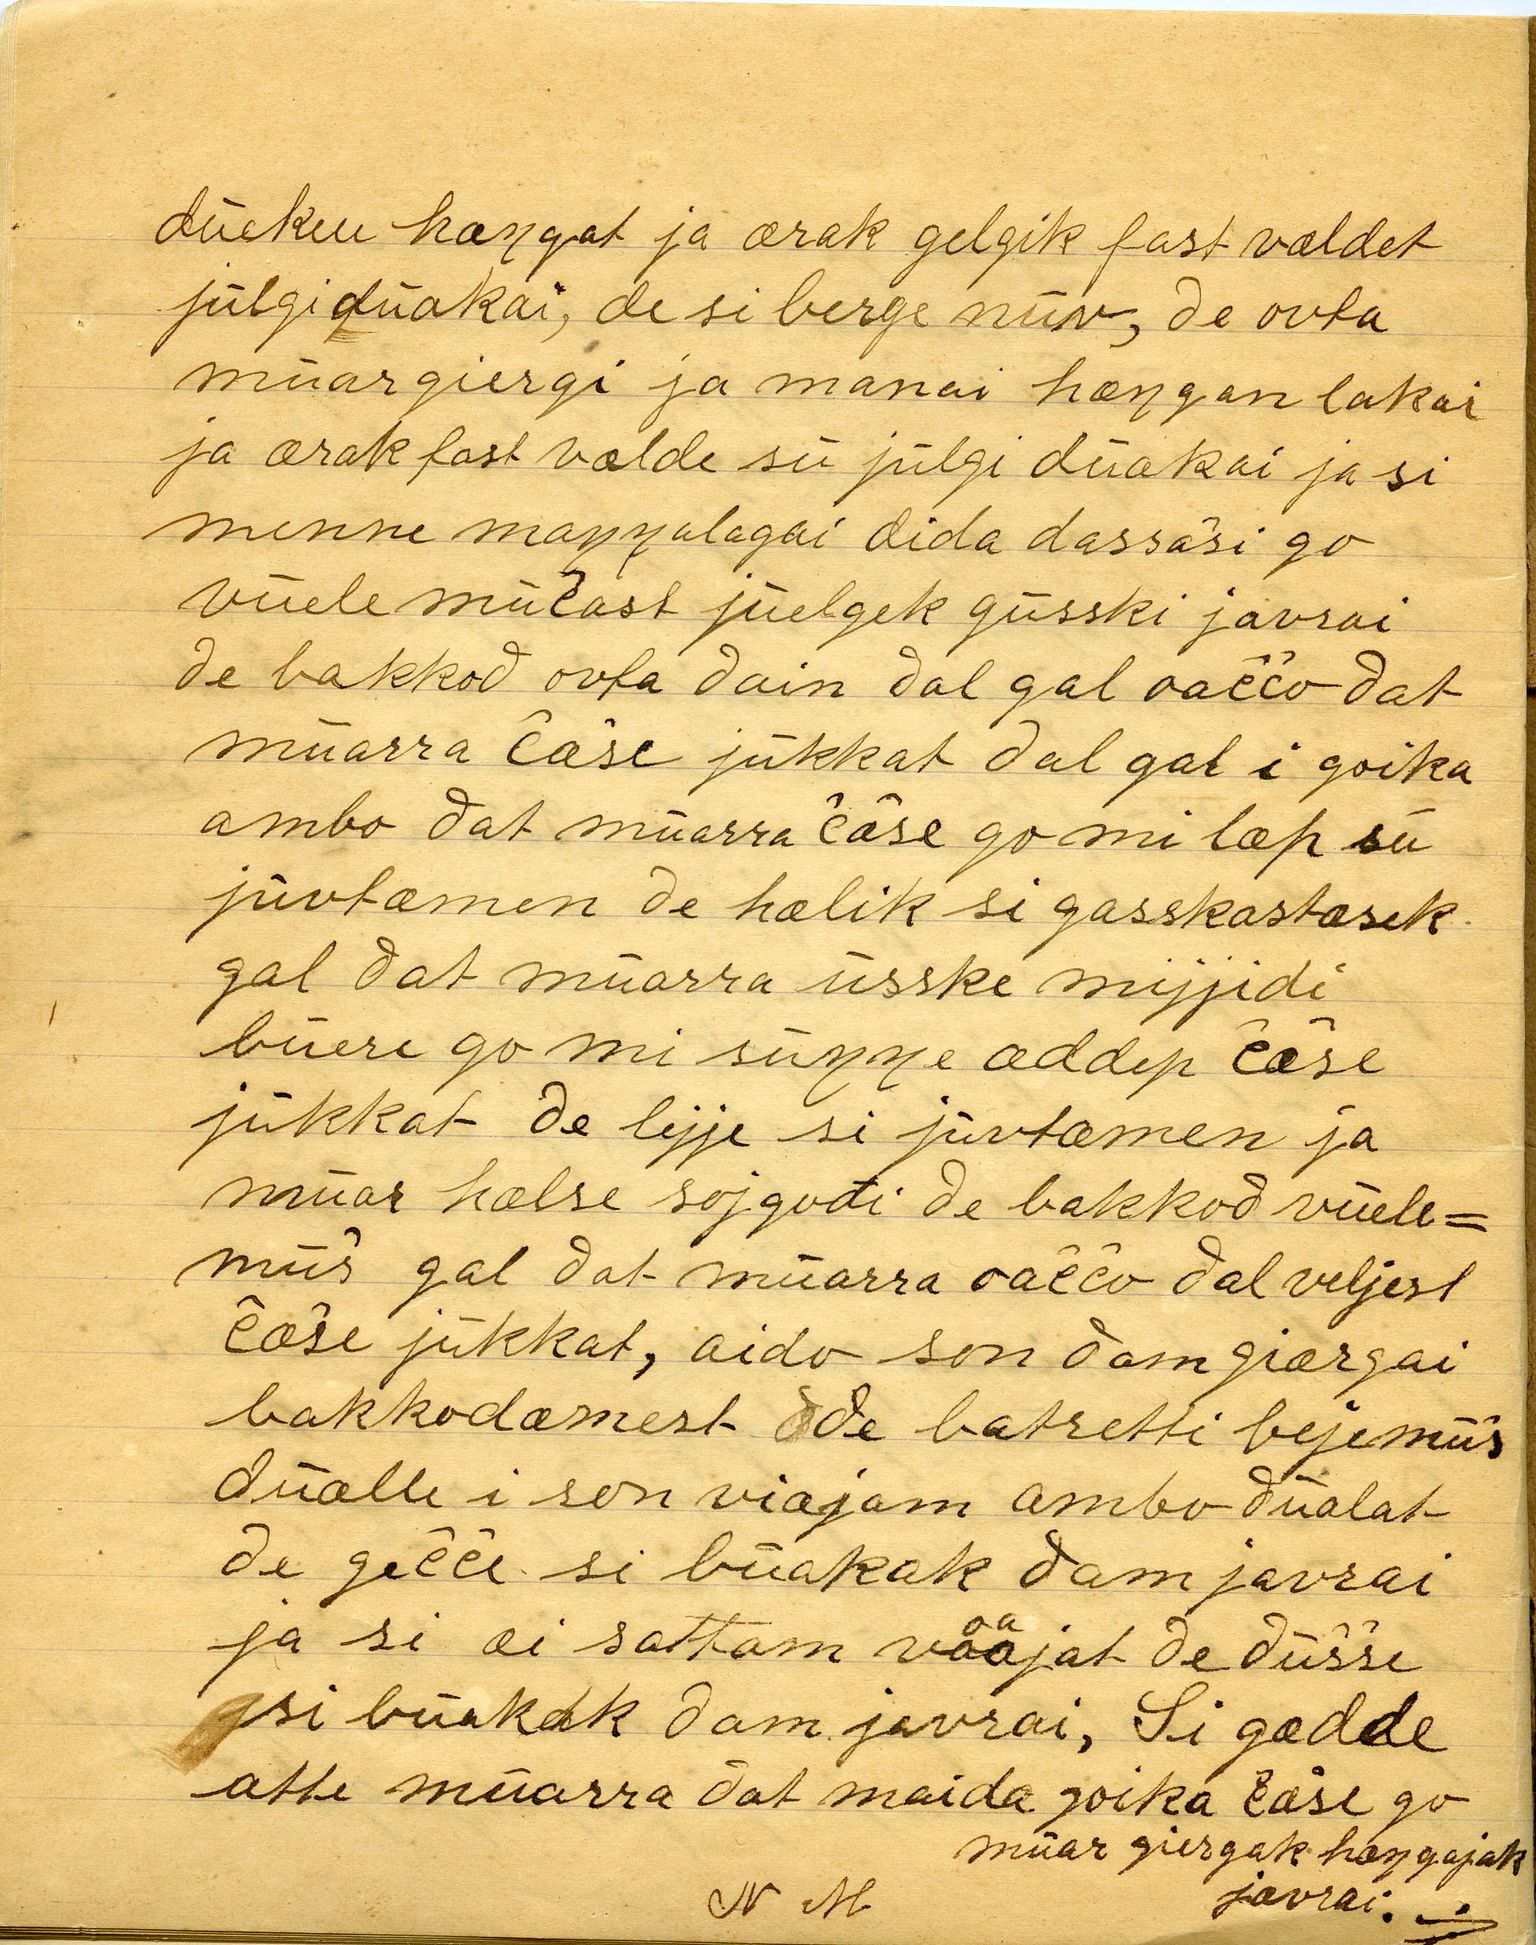 dūekuu hæŋgat ja ærak gelgik fast vældet
jūlgidūakai, de si berge nūv, de ovta
mūargiergi ja manai hæŋgan lakai
ja ærak fast vælde sū jūlgi dūakai ja si
menne maŋŋalagai dida dassăši go
vūele mūčast jūelgek gūsski javrai
de bakkod ovta dain dal gal oaččo dat
mūarra čăše jūkkat dal gal i goika
ambo dat mūarra čăše go mi læp sū
jūvtæmen de hælik si gasskastæsek
gal dat mūarra ūsske mijjidi
būere go mi sūŋŋe æddep čăše
jūkkat de lejje si jūvtæmen ja
mūar hælse sojgođi de bakkod vūele=
mūš gal dat mūarra oaččo dal veljest
čăše jūkkat, aido son dam giærgai
bakkodæmest de batsetti bejemūš
dūælle i son viæjam ambo dūalat
de gečče si būakak dam javrai
ja si æi sattam voajat de dūšše
si būakak dam javrai, Si gædde
atte mūarra dat maida goika čăše go
mūar giergak hæŋgajak
javrai.
N M